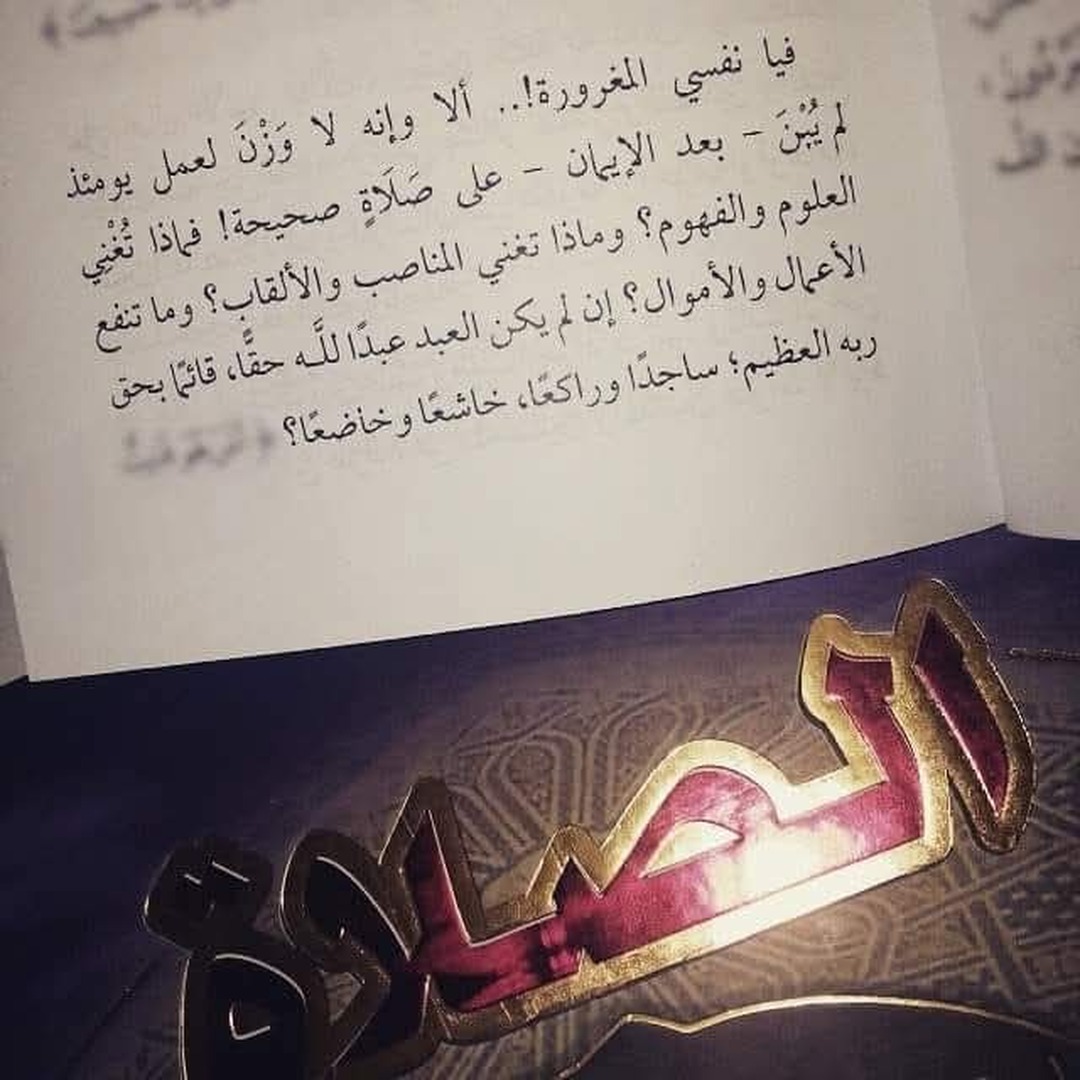 فيا نفسي المغرورة!.. ألا وإنه لا وَزْنَ لعمل يومئذ
لم يُبْنَ - بعد الإيمان - على صَلَاةٍ صحيحة! فماذا تُغْنِي
العلوم والفهوم؟ وماذا تغني المناصب والألقاب؟ وما تنفع
الأعمال والأموال؟ إن لم يكن العبد عبدًا للَّه حقًّا، قائمًا بحق
ربه العظيم؛ ساجدًا وراكعًا، خاشعًا وخاضعًا؟
الصلاة